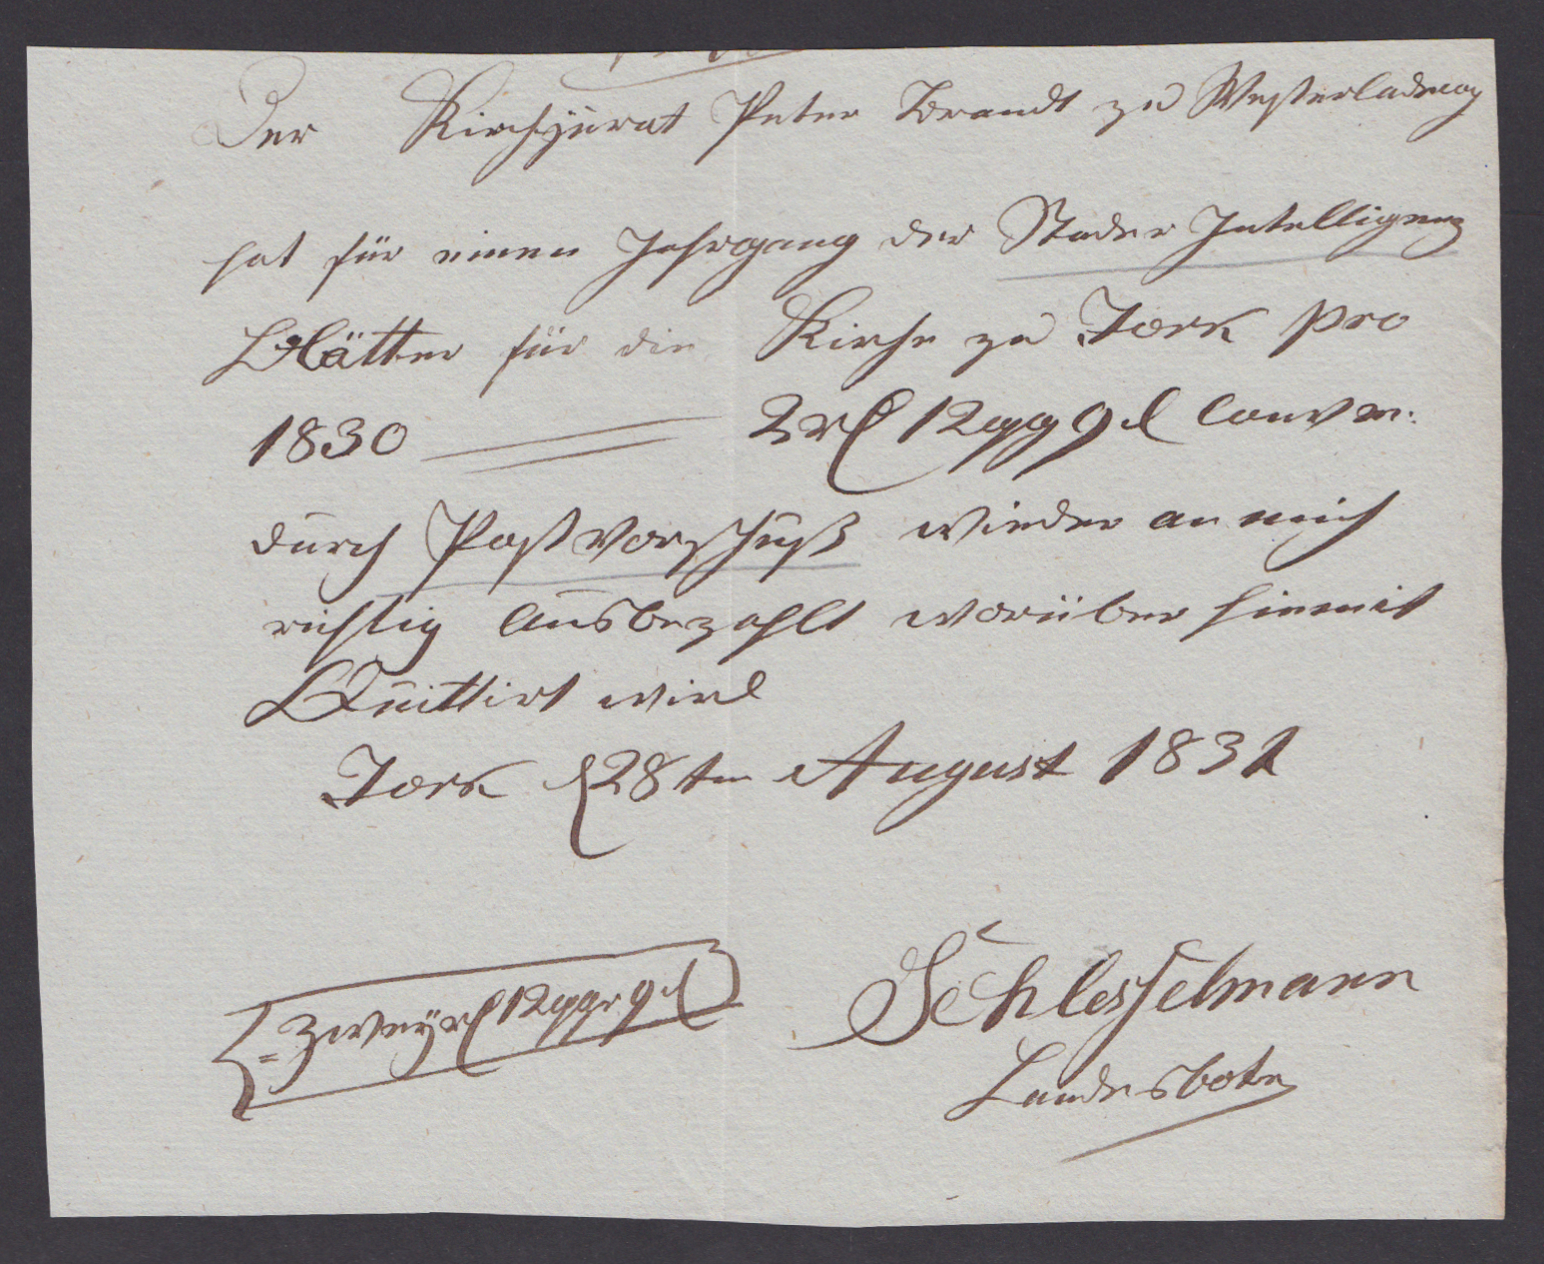 Der Kirchjurat Peter Brandt zu Westerladecop
hat für einen Jahrgang der Stader Intelligenz
Blätter für die Kirche zu Jork pro
1830 2 rℓ 12 ggr 9 ₰ Conv. m.
durch Postvorschuß wieder an mich
richtig Ausbezahlt worüber hiemit
Quittirt wird
Jork d 28ten August 1831
= Zwey rℓ 12 ggr. 9 ₰
Schlesselmann
Landesbote